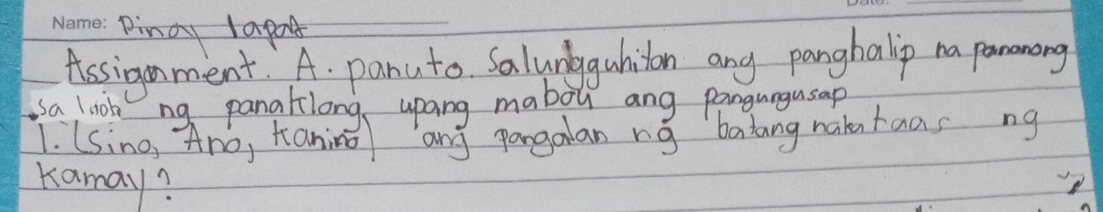 Name: Pinoy lapat
Assignment. A. panuto. Salungguhitan ang panghalip na pananong
sa loob ng panaklong, upang maboy ang Pangungusap
1. (Sino, Ano, Kanino) ang pangalan ng batang nakataas ng
Kamay?